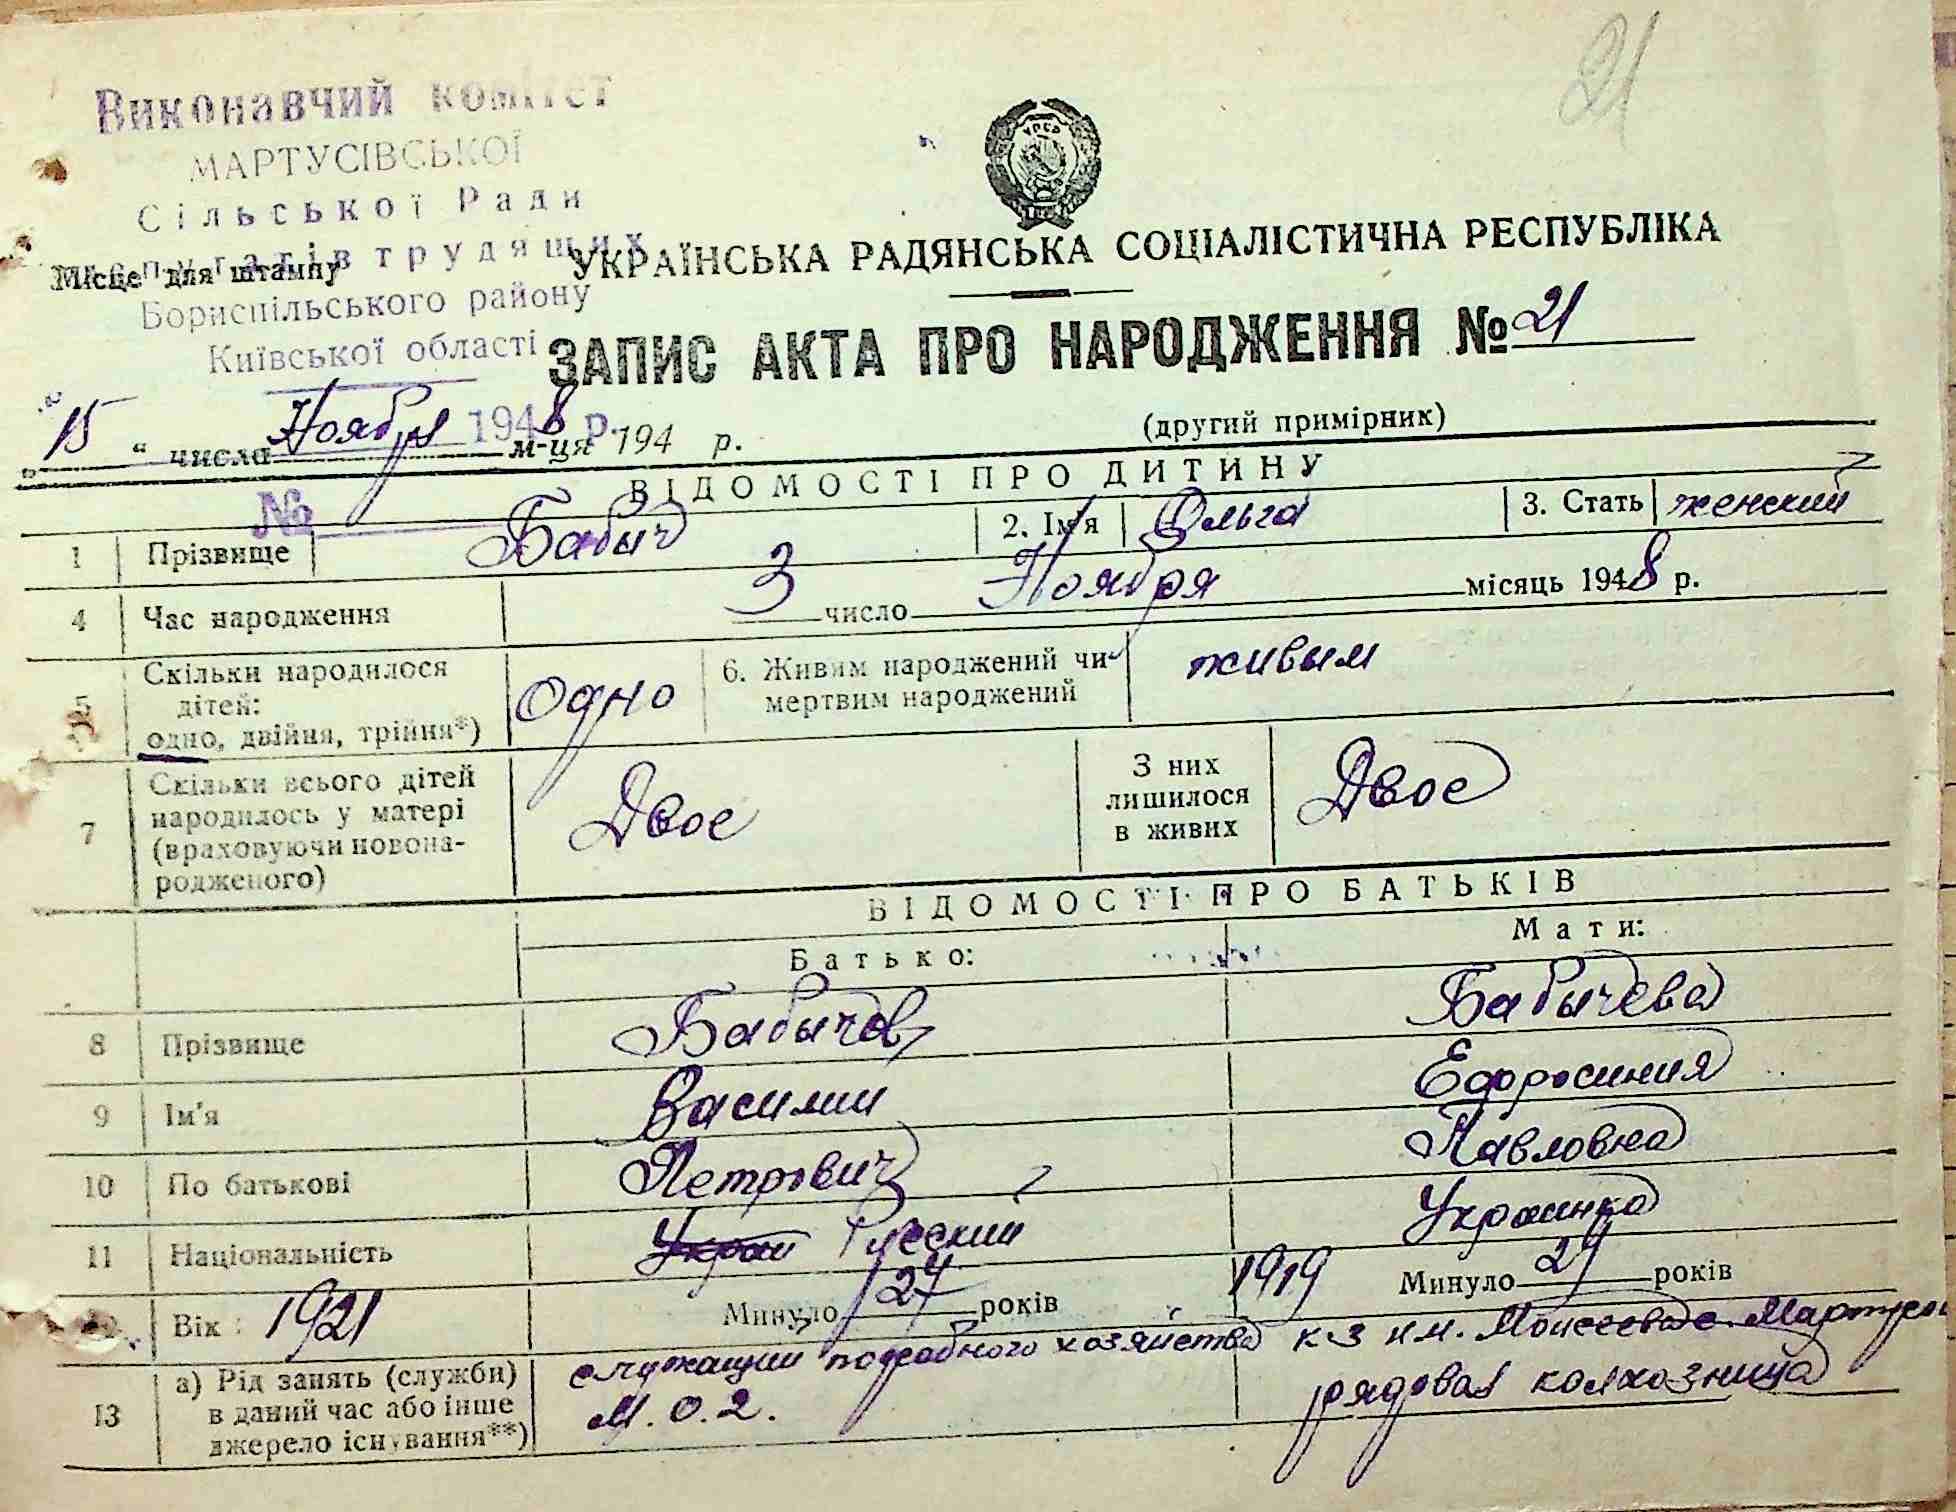 21
Виконавчий комітет
МАРТУСІВСЬКОЇ
Сільської Ради
депутатів трудящих
Місце для штампу
Бориспільського району
Київської області
УКРАЇНСЬКА РАДЯНСЬКА СОЦІАЛІСТИЧНА РЕСПУБЛІКА
ЗАПИС АКТА ПРО НАРОДЖЕННЯ № 21
(другий примірник)
„15“ числа Ноября 1948 р. м-ця 194 р.
№
ВІДОМОСТІ ПРО ДИТИНУ
1 Прізвище Бабыч 2. Ім'я Ольга 3. Стать женский
4 Час народження 3 число Ноября місяць 1948 р.
5 Скільки народилося дітей: одно, двійня, трійня*) Одно 6. Живим народжений чи мертвим народжений живым
7 Скільки всього дітей народилось у матері (враховуючи новонародженого) Двое З них лишилося в живих Двое
ВІДОМОСТІ ПРО БАТЬКІВ
Батько: Мати:
8 Прізвище Бабычов Бабычева
9 Ім'я Василии Ефросиния
10 По батькові Петрович Павловна
11 Національність Украи Русский Украинка
Вік: 1921 Минуло 27 років 1919 Минуло 29 років
13 а) Рід занять (служби) в даний час або інше джерело існування**)
служащии подсобного хозяйства
М.О.2.
к-з им. Моисеева с. Мартусов
рядовая колхозница